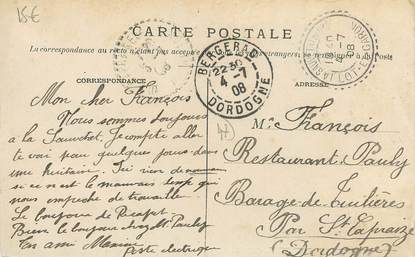 15€
CARTE POSTALE
La correspondance au recto n'étant pas acceptée
étrangers, se renseigner à la Poste
CORRESPONDANCE
ADRESSE
BERGERAC
22 30
4 - 7
08
DORDOGNE
LOT-ET-GARONNE
Mon cher François
Nous sommes toujours
a la Sauvetat. Je compte aller
te voir pour quelques jours dans
une huitaine.
si ce n'est le mauvais temps qui
nous empeche de travailler
Le bonjour de
Bien le bonjour chez Mr Pauly
Ton ami
Poste electrique
Mr François
Restaurant Pauly
Barage de Tuilières
Par St Capraize
(Dordogne)